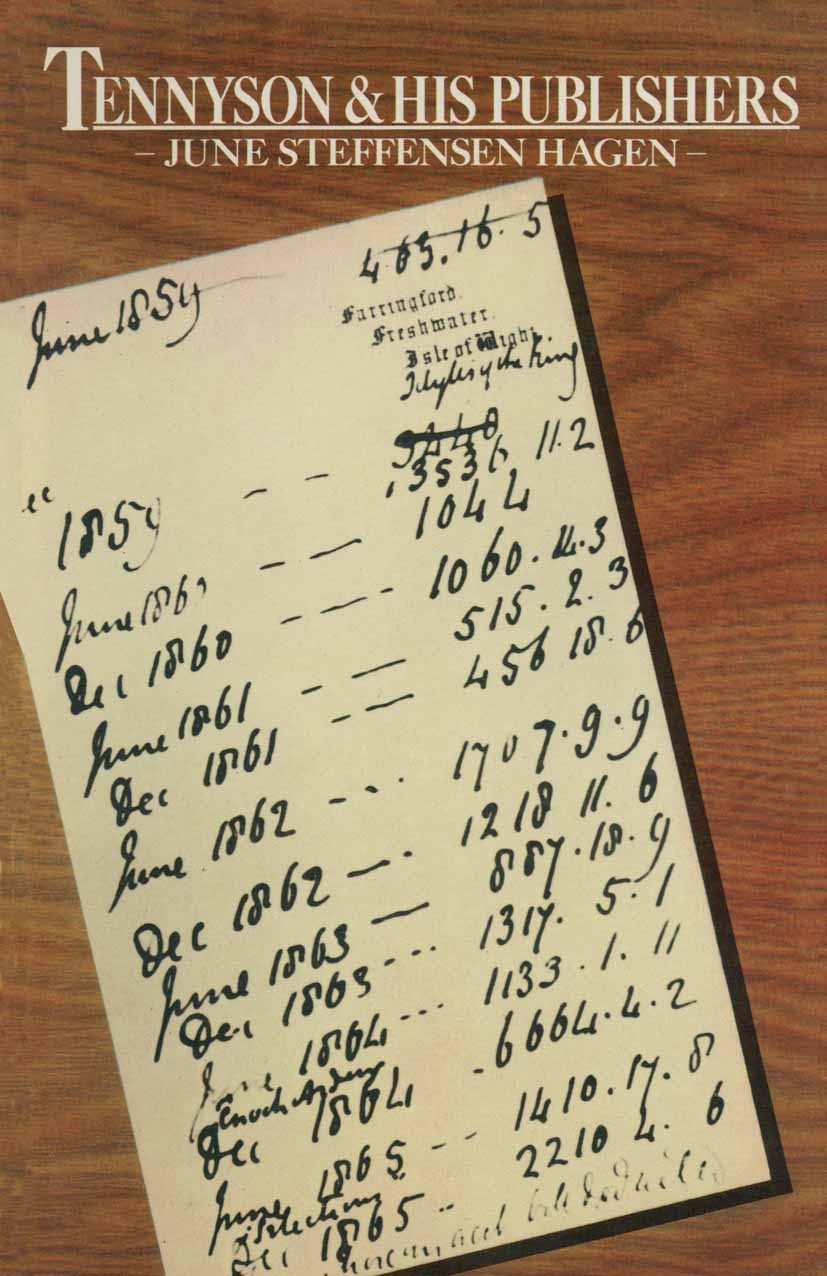 TENNYSON & HIS PUBLISHERS
– JUNE STEFFENSEN HAGEN –
June 1859 463.16.5
Farringford.
Freshwater.
Isle of Wight.
Idylls of the King
3440
" 1859 -- 3536. 11.2
June 1860 -- 1044
Dec 1860 --- 1060.14.3
June 1861 -- 515.2.3
Dec 1861 -- 456 18.6
June 1862 --- 1707.9.9
Dec 1862 -- 1218 11.6
June 1863 - 887.18.9
Dec 1863 --- 1317. 5.1
June 1864 --- 1133.1.11
Enoch Arden
Dec 1864 - 6664.4.2
June 1865 -- 1410.17.8
Selections
Dec 1865 -- 2210 4.6